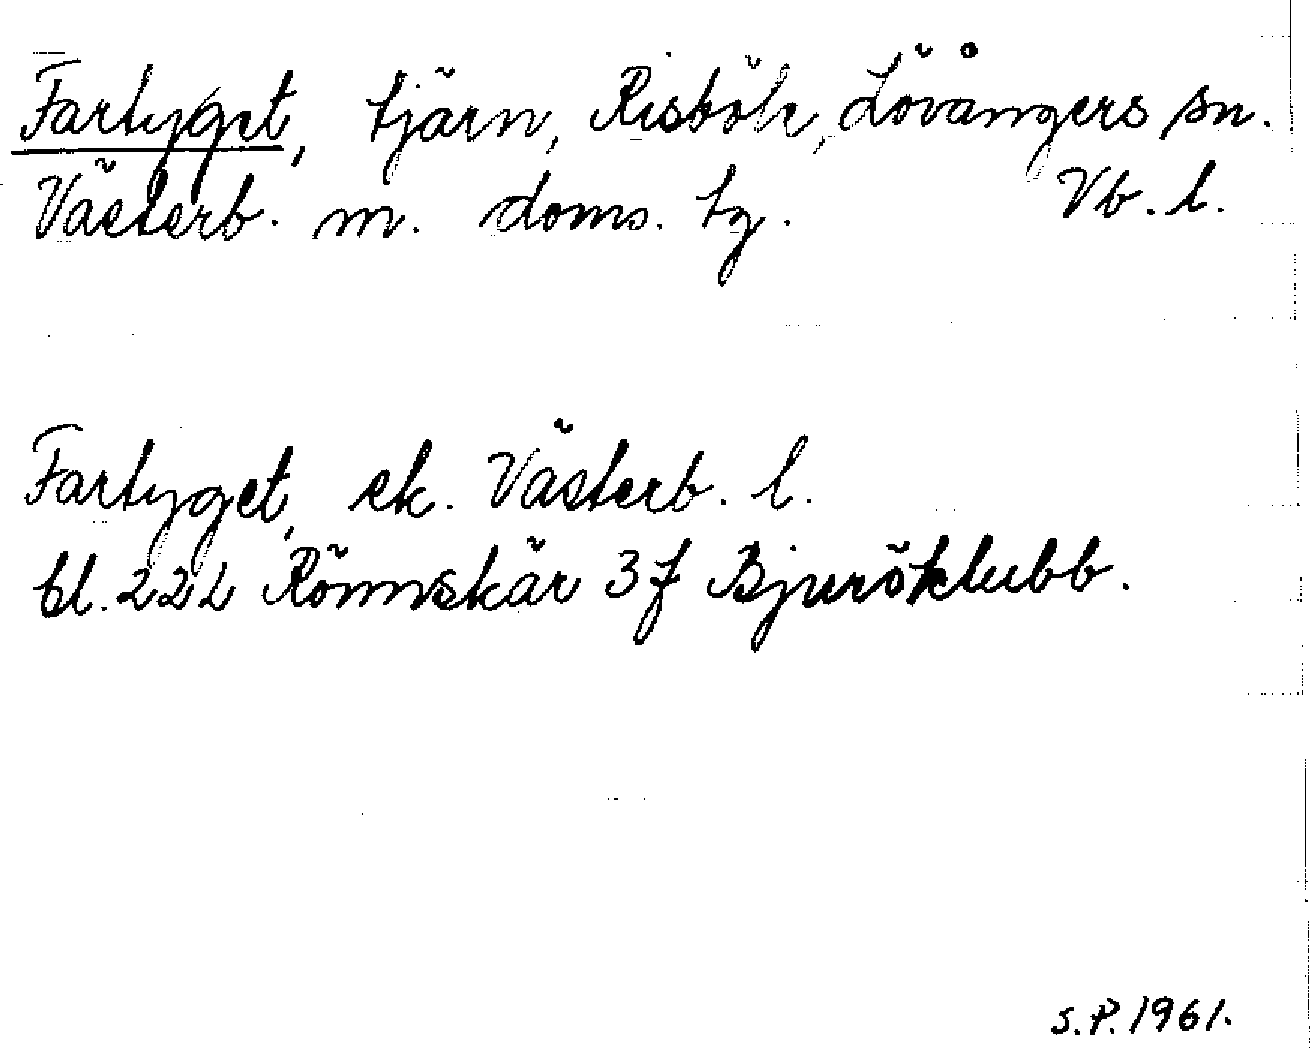 Fartyget, tjärn, Risböle, Lövångers sn.
Västerb. m. doms. tg. Vb. l.
Fartyget, ek. Västerb. l.
bl. 222 Rönnskär 3f Bjuröklubb.
S.P. 1961.